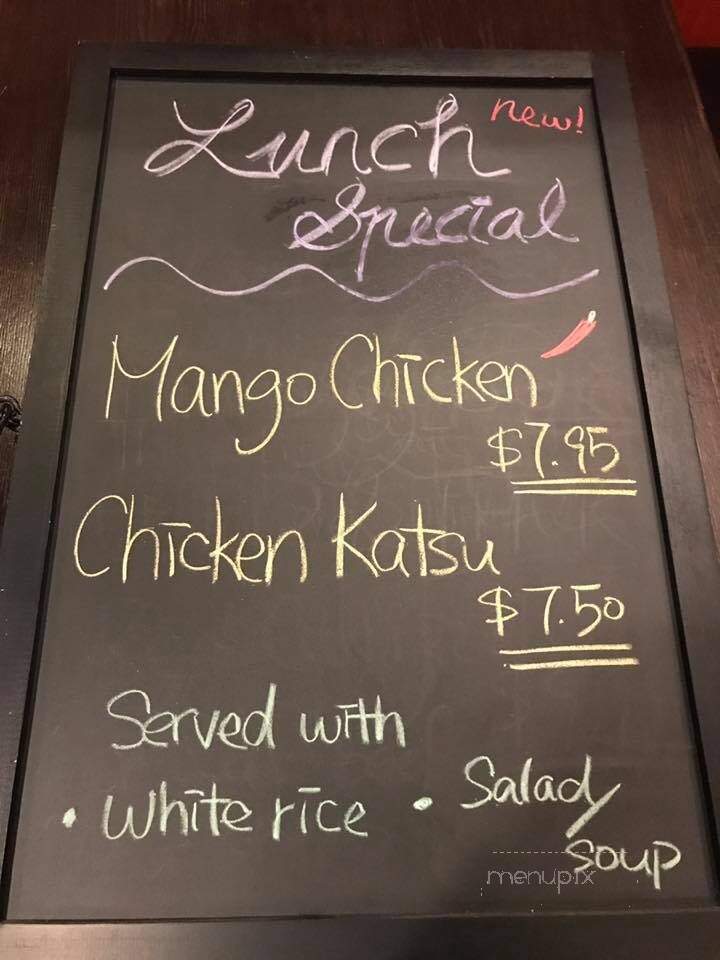 Lunch new!
Special
Mango Chicken
$7.95
Chicken Katsu
$7.50
Served with
• White rice • Salad/
soup
menupix